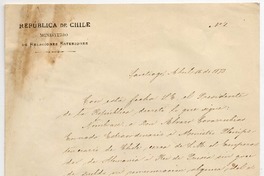 REPÚBLICA DE CHILE
MINISTERIO
DE RELACIONES EXTERIORES
Santiago, Abril 16 de 18
Con esta fecha S.E. el Presidente
de la República decretó lo que sigue:
Nómbrase a Don Álvaro Covarrubias
Enviado Extraordinario i Ministro Plenipo
tenciario de Chile, cerca de S. M. el Emperador
de Alemania i Rei de Prusia
sueldo